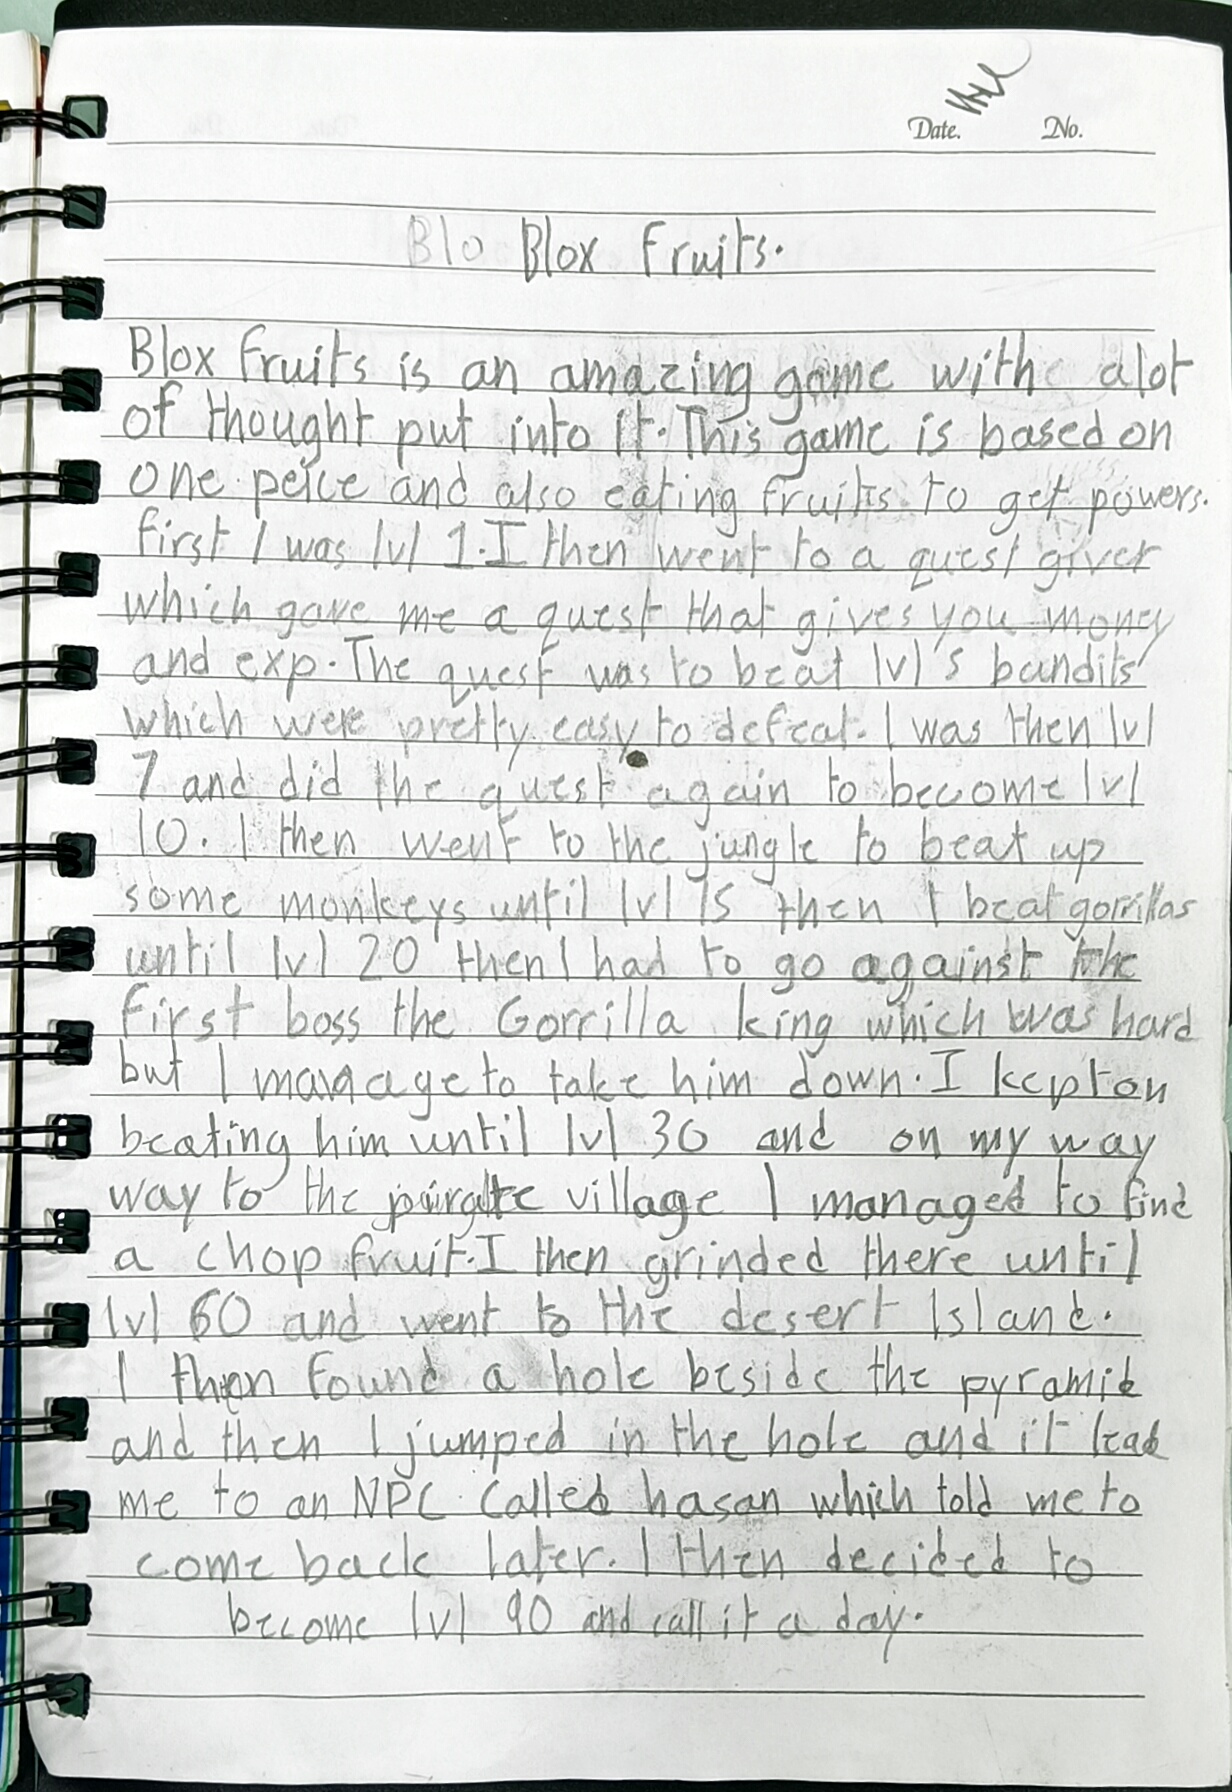 Date. No.
Blo Blox fruits.
Blox fruits is an amazing game with a lot
of thought put into it. This game is based on
one peice and also eating fruits to get powers.
first I was lvl 1. I then went to a quest giver
which gave me a quest that gives you money
and exp. The quest was to beat lvl 5 bandits
which were pretty easy to defeat. I was then lvl
7 and did the quest again to become lvl
10. I then went to the jungle to beat up
some monkeys until lvl 15 then I beat gorrillas
until lvl 20 then I had to go against the
first boss the Gorrilla king which was hard
but I manage to take him down. I kept on
beating him until lvl 30 and on my way
way to the pirate village I managed to find
a chop fruit. I then grinded there until
lvl 60 and went to the desert Island.
I then found a hole beside the pyramid
and then I jumped in the hole and it lead
me to an NPC called hasan which told me to
come back later. I then decided to
become lvl 90 and call it a day.